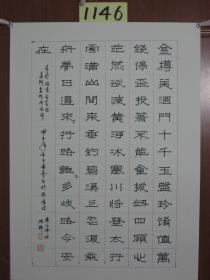 1146
金樽美酒鬥十千玉盤珍饈值萬
錢停盃投箸不能食拔劍四顧心
茫然欲渡黃河冰塞川將登太行
雪滿山閒來垂釣碧溪上忽復乘
舟夢日邊來行路難多歧路今安
在